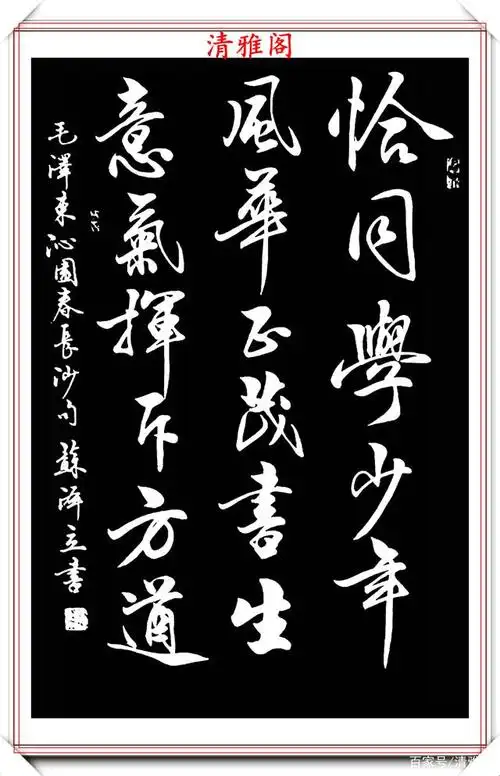 清雅阁
恰同學少年
風華正茂書生
意氣揮斥方遒
毛澤東沁園春長沙句 蘇澤立書
百家号/清雅